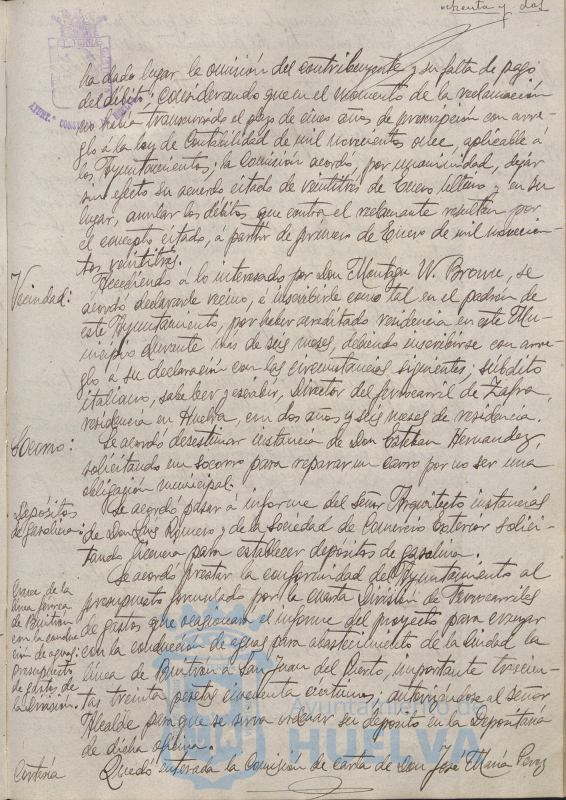 ochenta y dos
ha dado lugar la omisión del contribuyente y su falta de pago
del débito; considerando que en el momento de la reclamación
no había transcurrido el plazo de cinco años de prescripción con arre-
glo á la ley de Contabilidad de mil novecientos once, aplicable a
los Ayuntamientos; la Comisión acordó, por unanimidad, dejar
sin efecto su acuerdo citado de veintitres de Enero último y en su
lugar, anular los débitos que contra el reclamante resultan por
el concepto citado, á partir de primero de Enero de mil novecien-
tos veintitrés.
Vecindad: Accediendo á lo interesado por Don Montagu W. Brown, se
acordó declararle vecino, é inscribirle como tal en el padrón de
este Ayuntamiento, por haber acreditado residencia en este Mu-
nicipio durante más de seis meses, debiendo inscribirse con arre-
glo á su declaración con las circunstancias siguientes; súbdito
italiano, sabe leer y escribir, Director del ferrocarril de Zafra,
residencia en Huelva, con dos años y seis meses de residencia.
Socorro: Se acordó desestimar instancia de Don Esteban Hernandez,
solicitando un socorro para reparar un carro por no ser una
obligación municipal.
Depósitos de gasolina: Se acordó pasar á informe del señor Arquitecto instancias
de Don Luis Romero y de la Sociedad de Comercio Exterior solici-
tando licencia para establecer depósitos de gasolina.
Cruce de la
línea férrea
de Buitrón
con la conduc
ción de aguas:
presupuesto
de gastos de
la División.
Se acordó prestar la conformidad del Ayuntamiento al
presupuesto formulado por la cuarta División de Ferrocarriles
de gastos que ocasionará el informe del proyecto para cruzar
con la conducción de aguas para abastecimiento de la Ciudad la
línea de Buitrón a San Juan del Puerto, importante trescien-
tas treinta pesetas cincuenta céntimos; autorizándose al señor
Alcalde para que se sirva ordenar su depósito en la Depositaría
de dicha oficina.
Cortesía Quedó enterada la Comisión de carta de Don José María Perez
Ayuntamiento de
HUELVA